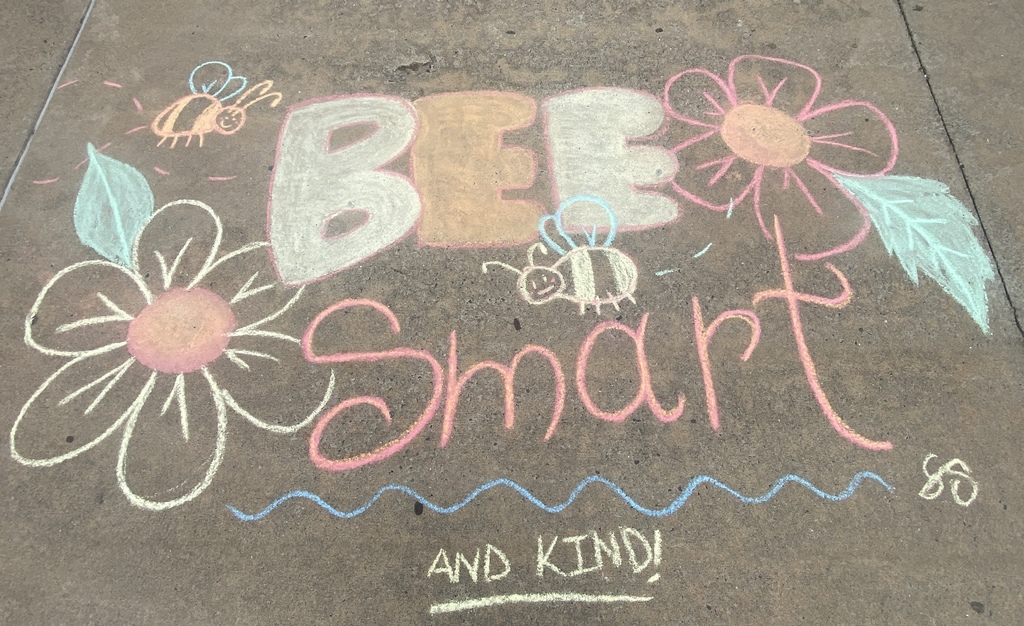 BEE
Smart
AND KIND!